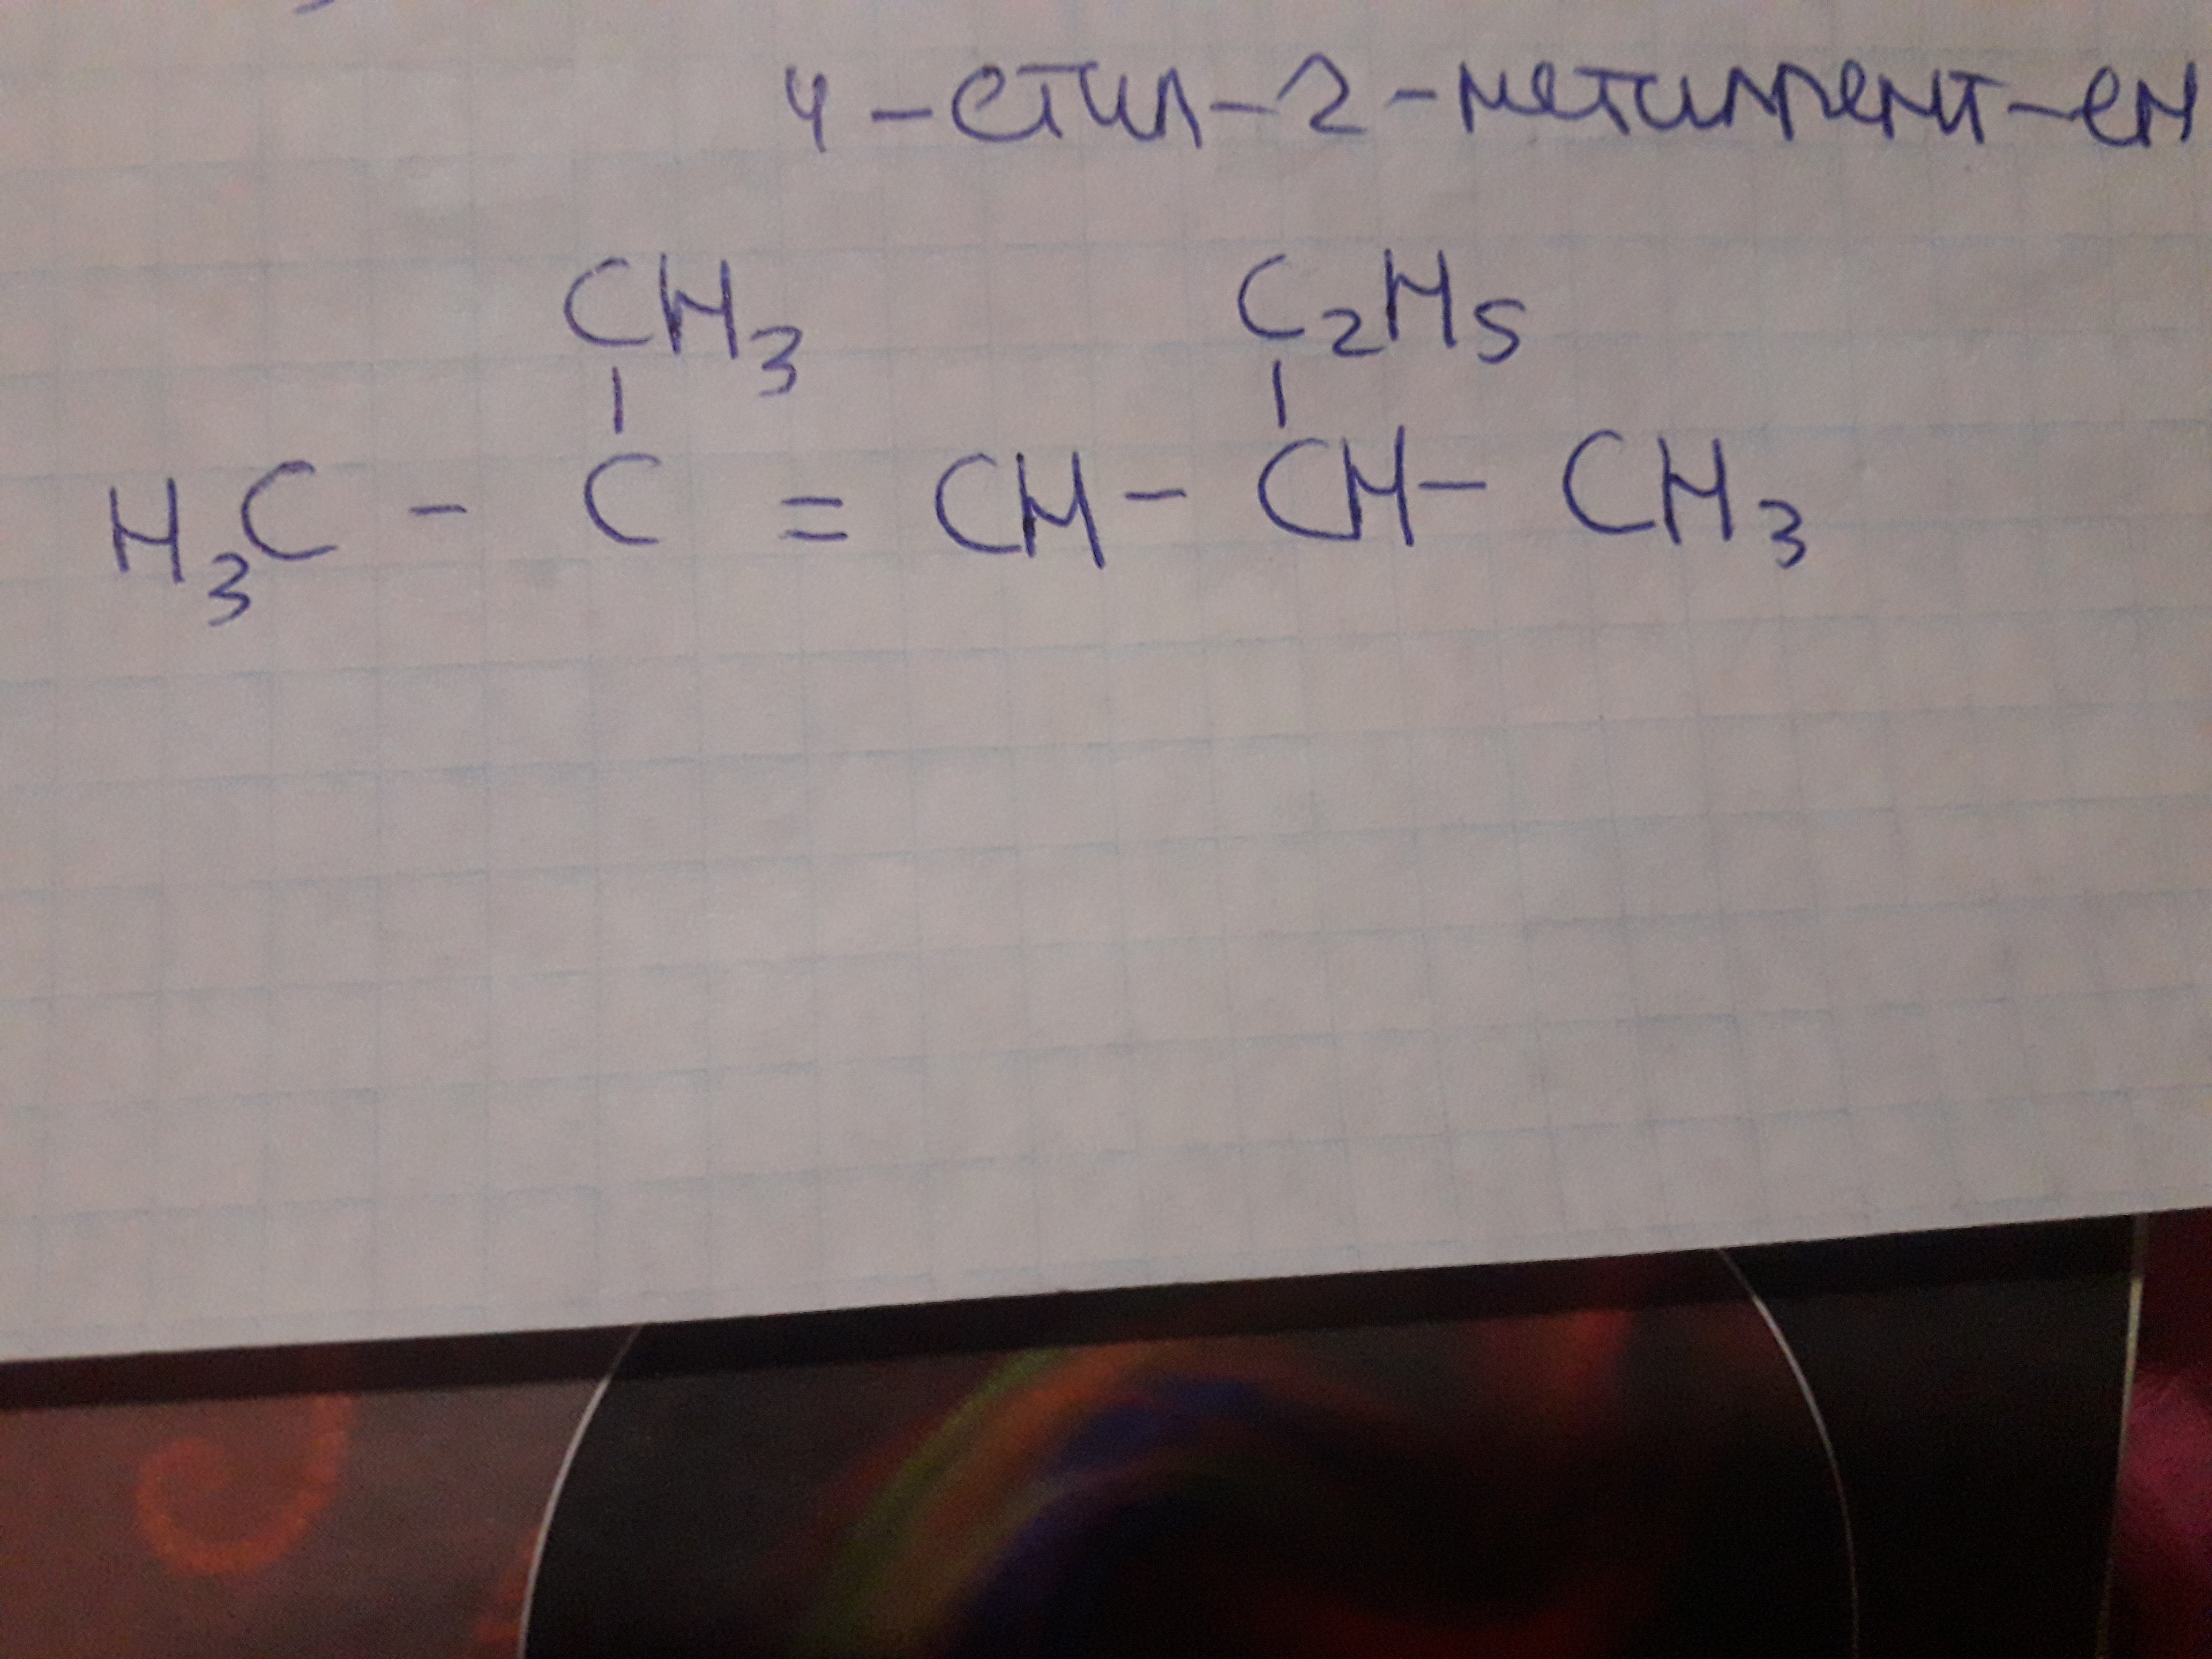 4-етил-2-метилпент-ен
CH3 C2H5
H3C - C = CH - CH - CH3